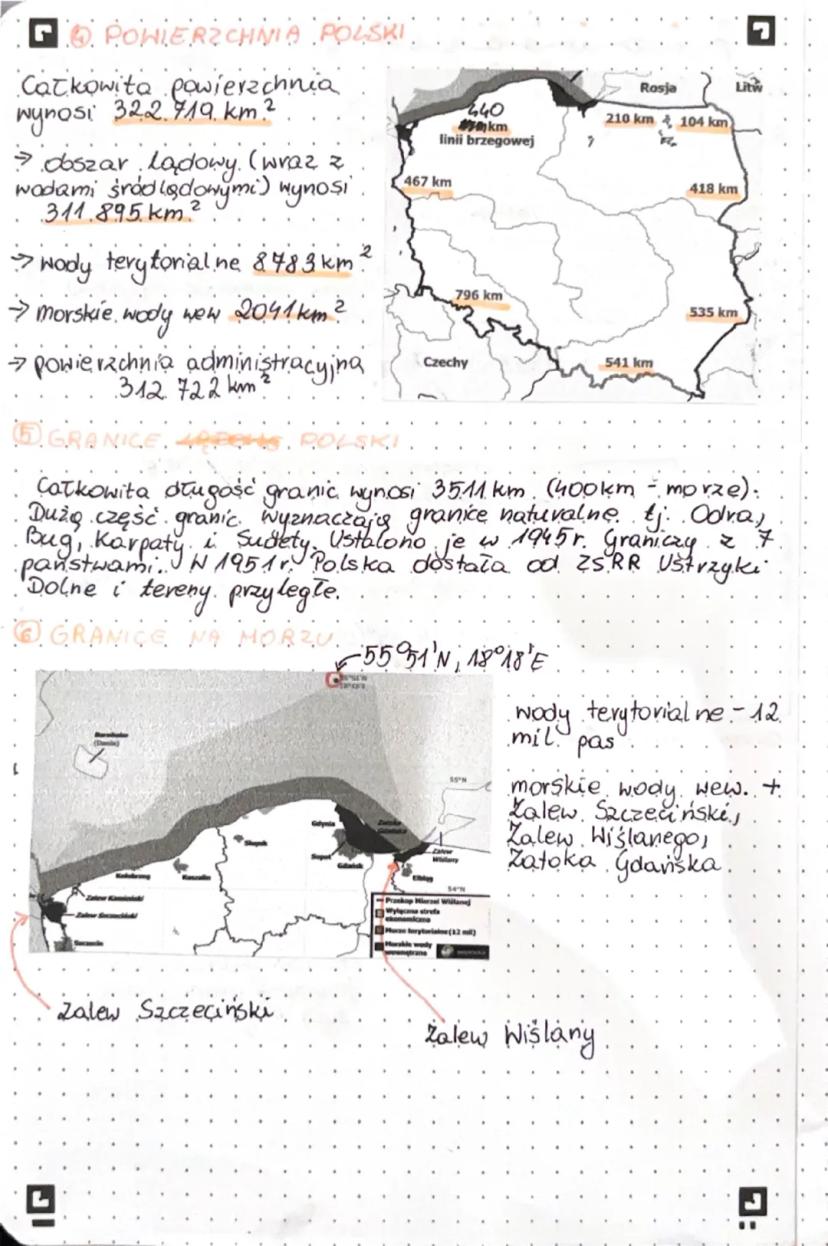 ④ POWIERZCHNIA POLSKI
Całkowita powierzchnia
wynosi 322.719 km²
→ obszar lądowy (wraz z
wodami śródlądowymi) wynosi
311.895 km²
→ wody terytorialne 8783 km²
→ morskie wody wew 2041 km²
→ powierzchnia administracyjna
312 722 km²
Rosja
Litw
440
km
linii brzegowej
210 km
104 km
467 km
418 km
796 km
535 km
Czechy
541 km
⑤ GRANICE POLSKI
Całkowita długość granic wynosi 3511 km (400km - morze).
Dużą część granic wyznaczają granice naturalne tj. Odra,
Bug, Karpaty i Sudety. Ustalono je w 1945r. Graniczy z 7
państwami. W 1951r. Polska dostała od ZSRR Ustrzyki
Dolne i tereny przyległe.
⑥ GRANICE NA MORZU
55°51'N, 18°18'E
Bornholm
(Dania)
55°N
Gdynia
Zatoka
Gdańska
Słupsk
Sopot
Gdańsk
Zalew
Wiślany
Kołobrzeg
Koszalin
Elbląg
54°N
Zalew Kamieński
Zalew Szczeciński
Szczecin
Przekop Mierzei Wiślanej
Wyłączna strefa
ekonomiczna
Morze terytorialne (12 mil)
Morskie wody
wewnętrzne
wody terytorialne - 12
mil. pas
morskie wody wew. +
Zalew Szczeciński,
Zalew Wiślanego,
Zatoka Gdańska
Zalew Szczeciński
Zalew Wiślany